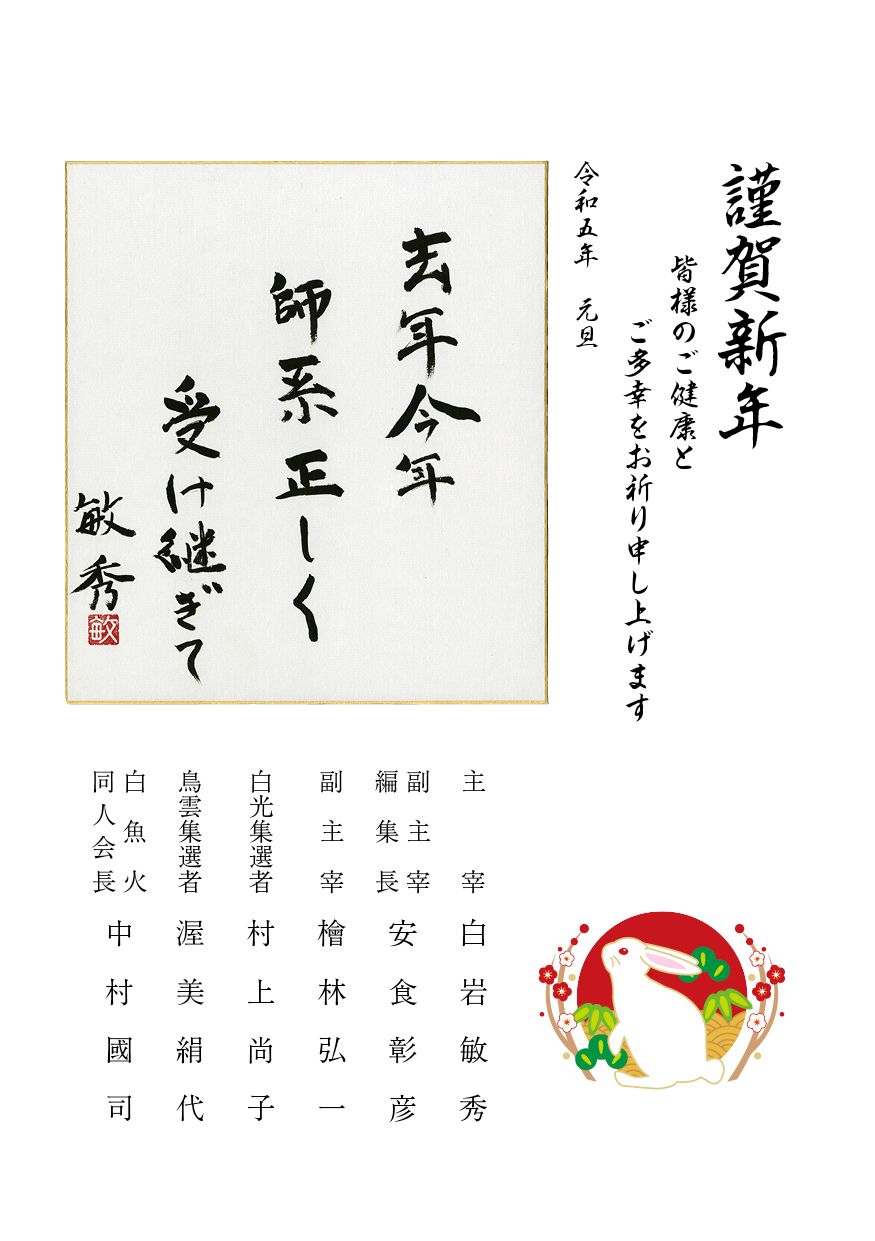 謹賀新年
皆様のご健康と
ご多幸をお祈り申し上げます
令和五年　元旦
去年今年
師系正しく
受け継ぎて
敏秀
敏
主宰　白岩敏秀
副主宰
編集長　安食彰彦
副主宰　檜林弘一
白光集選者　村上尚子
鳥雲集選者　渥美絹代
白魚火
同人会長　中村國司